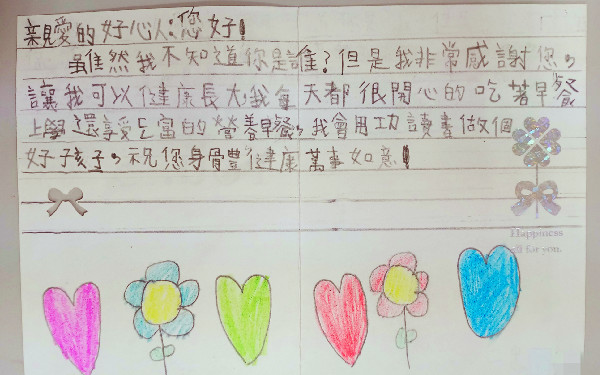 親愛的好心人:您好!
雖然我不知道你是誰?但是我非常感謝您,
讓我可以健康長大,我每天都很開心的吃著早餐
上學還享受豐富的營養早餐,我會用功讀書做個
好孩子,祝您身體健康萬事如意!
Happiness
all for you.